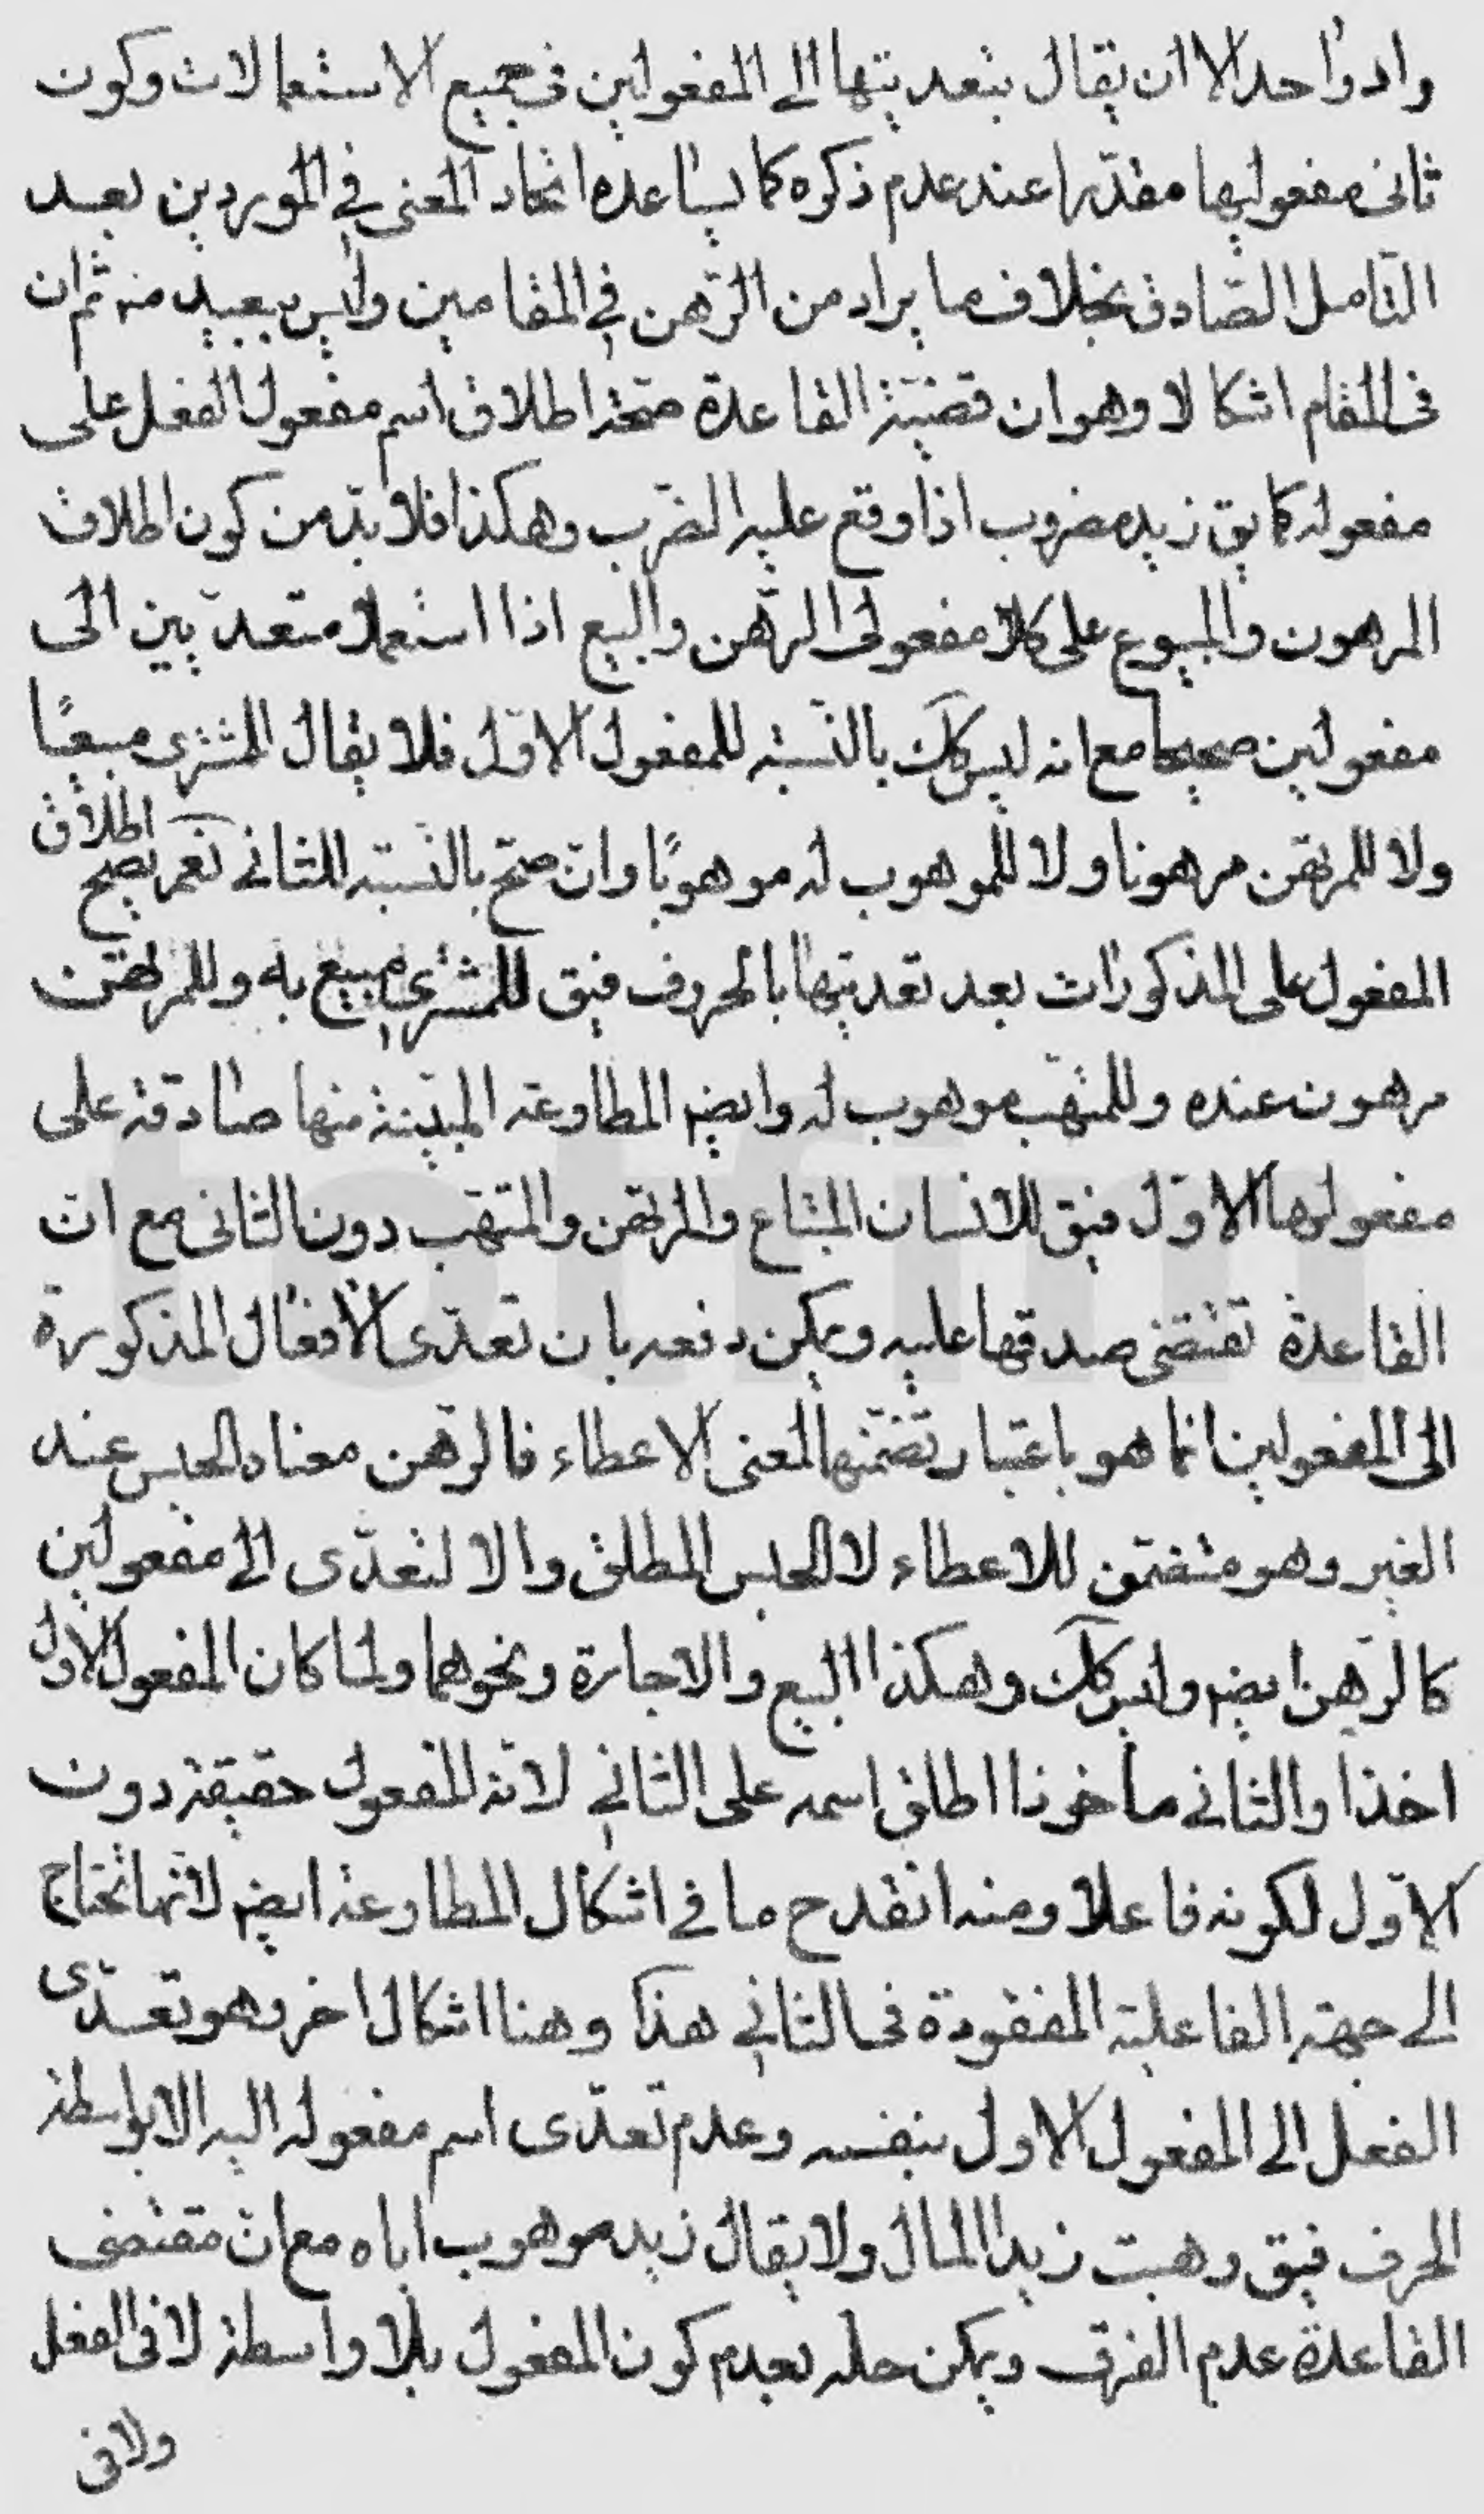 واد واحد الا ان يقال بتعديتها الى المفعولين فى جميع الاستعمالات وكون
ثانى مفعوليها مقدرا عند عدم ذكره كما يساعده اتحاد المعنى فى الموردين بعد
التامل الصادق بخلاف ما يراد من الرهن فى المقامين وليس ببعيد منه ثم ان
فى المقام اشكالا وهو ان قضية القاعدة صحة اطلاق اسم مفعول الفعل على
مفعوله كما يق زيد مضروب اذا وقع عليه الضرب وهكذا فلا بد من كون اطلاق
المرهون والمبيوع على كلا مفعولى الرهن والبيع اذا استعملا متعديين الى
مفعولين صحيحا مع انه ليس كك بالنسبة للمفعول الاول فلا يقال المشترى مبيعًا
ولا للمرتهن مرهونا ولا للموهوب له موهوبًا وان صح بالنسبة للثانى نعم يصح اطلاق
المفعول على المذكورات بعد تعديتها بالحروف فيق للمشترى مبيع به وللمرتهن
مرهون عنده وللمتهب موهوب له وايضا المطاوعة المبينة منها صادقة على
مفعولها الاول فيق للانسان المبتاع والمرتهن والمتهب دون الثانى مع ان
القاعدة تقتضى صدقها عليه ويمكن دفعه بان تعدى الافعال المذكورة
الى المفعولين انما هو باعتبار تضمنها لمعنى الاعطاء فالرهن معناه الحبس عند
الغير وهو متضمن للاعطاء لا الحبس المطلق والا لتعدى الى مفعولين
كالرهن ايضا وليس كك وهكذا البيع والاجارة ونحوهما ولما كان المفعول الاول
اخذا والثانى ماخوذا اطلق اسمه على الثانى لانه المفعول حقيقة دون
الاول لكونه فاعلا ومنه انقدح ما فى اشكال المطاوعة ايضا لانها تحتاج
الى جهة الفاعلية المفقودة فى الثانى هذا وهنا اشكال اخر وهو تعدى
الفعل الى المفعول الاول بنفسه وعدم تعدى اسم مفعوله اليه الا بواسطة
الحرف فيق وهبت زيدا المال ولا يقال زيد موهوب اياه مع ان مقتضى
القاعدة عدم الفرق ويمكن حله بعدم كون المفعول بلا واسطة لا فى الفعل
ولا فى